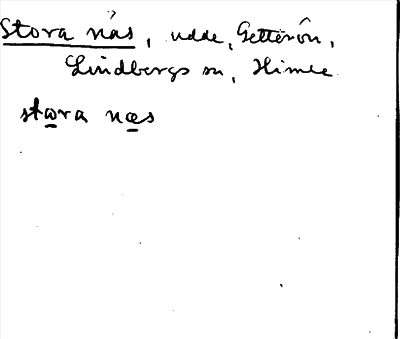 Stora nås, udde, Getterön,
Lindbergs sn, Himle
stora næs